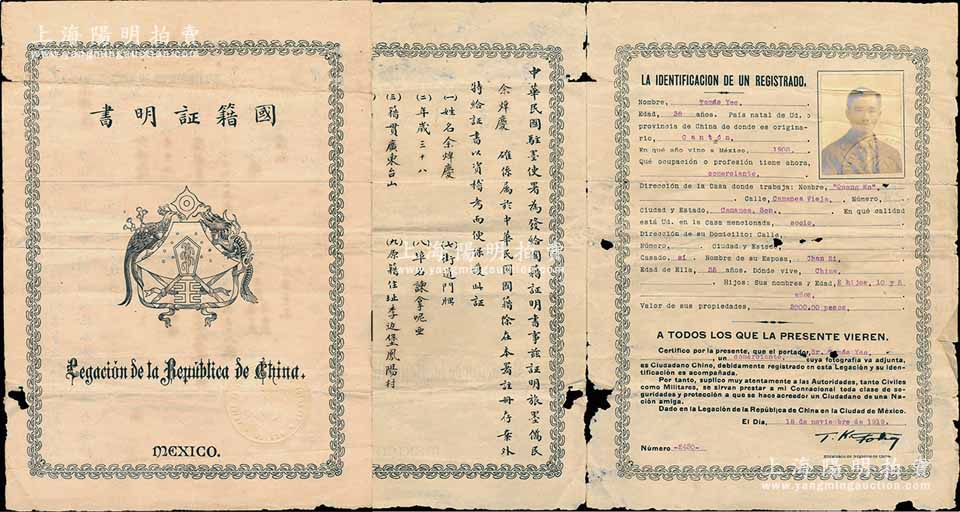 上海陽明拍賣
www.yangmingauction.com
書明証籍國
Legación de la República de China.
MEXICO.
中華民國駐墨使署為發給國籍証明書事茲証明旅墨僑民
余焯慶 確係屬於中華民國國籍除在本署註冊存案外
特給証書以資稽考而便保護此証
(一)姓名余焯慶
(二)年歲三十八
(三)籍貫廣東台山
(七)街道門牌
(八)埠名諫拿呢亞
(九)原籍住址李边堡鳳陽村
LA IDENTIFICACION DE UN REGISTRADO.
Nombre, Tomás Yee,
Edad, 38 años. País natal de Ud. o
provincia de China de donde es origina-
rio, Cantón.
En qué año vino a México, 1908.
Qué ocupación o profesión tiene ahora,
comerciante,
Dirección de la Casa donde trabaja: Nombre,
Calle, Cananea Vieja, Número,
Ciudad y Estado, Cananea, Son. En qué calidad
está Ud. en la Casa mencionada, socio.
Dirección de su Domicilio: Calle,
Número, ciudad y Estado,
Casado, sí. Nombre de su Esposa, Chan Si,
Edad de Ella, años. Dónde vive, China.
Hijos: Sus nombres y Edad, 2 hijos, 10 y 8
años,
Valor de sus propiedades, 2000.00 pesos.
A TODOS LOS QUE LA PRESENTE VIEREN.
Certifico por la presente, que el portador, Sr. Tomás Yee,
un comerciante, cuya fotografía va adjunta,
es Ciudadano Chino, debidamente registrado en esta Legación y su iden-
tificación es acompañada.
Por tanto, suplico muy atentamente a las Autoridades, tanto Civiles
como Militares, se sirvan prestar a mi Connacional toda clase de se-
guridades y protección a que se hace acreedor un Ciudadano de una Na-
ción amiga.
Dado en la Legación de la República de China en la Ciudad de México.
El Día, 18 de noviembre de 1919.
Número -2480-
上海陽明拍賣
www.yangmingauction.com
上海陽明拍賣
www.yangmingauction.com